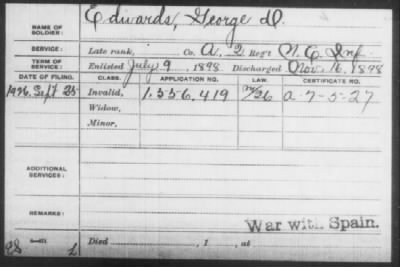 NAME OF SOLDIER: Edwards, George D.
SERVICE: Late rank, Co. A, 2 Reg't N.C. Inf.
TERM OF SERVICE: Enlisted July 9, 1898 Discharged Nov. 16, 1898
DATE OF FILING. CLASS. APPLICATION NO. LAW. CERTIFICATE NO.
1926, Sept 25 Invalid, 1,556,419 a 7-5-27
Widow,
Minor,
ADDITIONAL SERVICES:
REMARKS: War with Spain.
Died , 1 , at